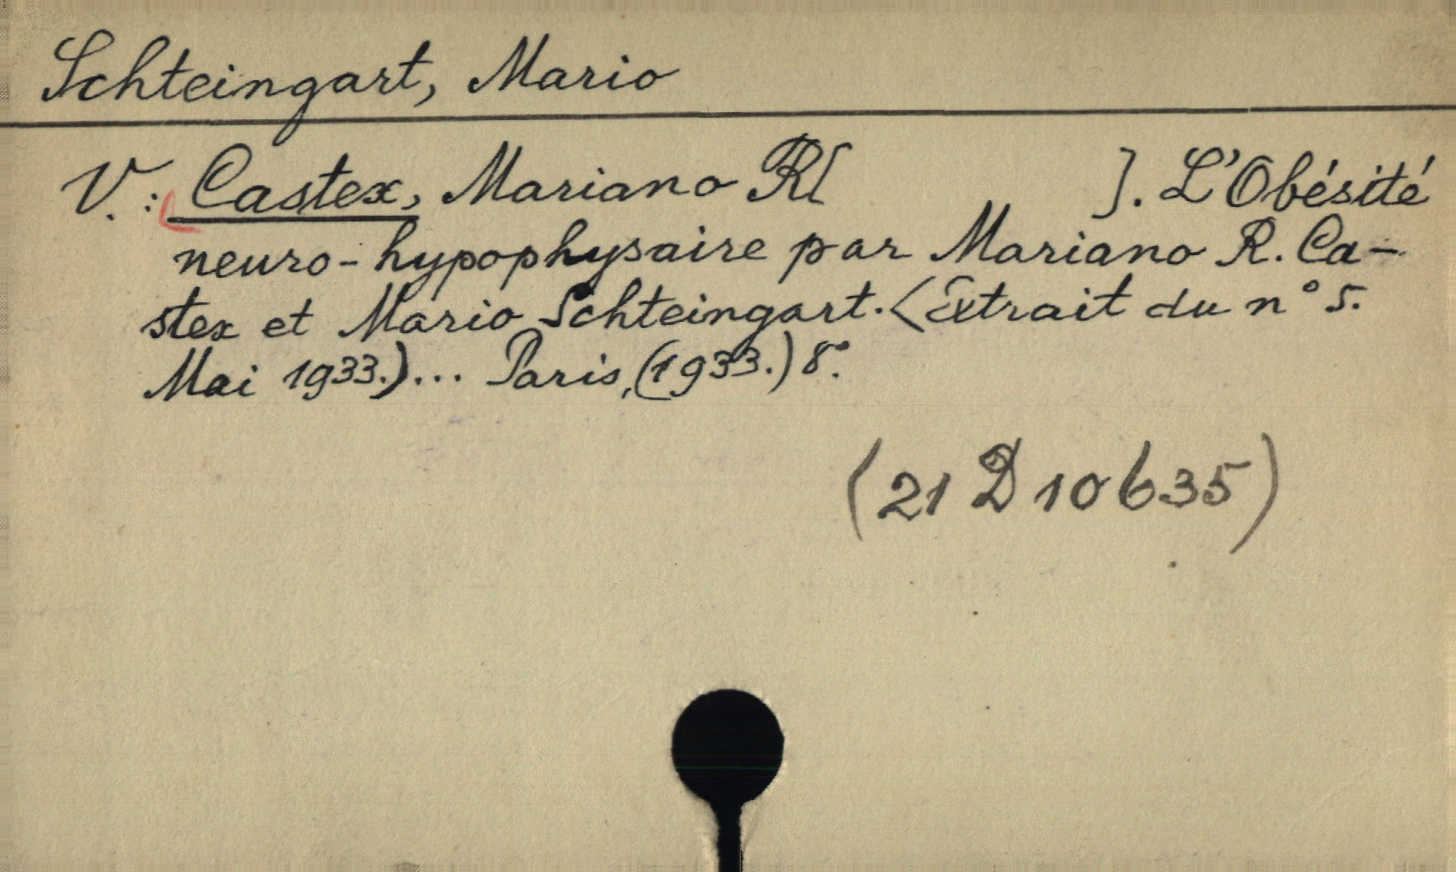 Schteingart, Mario
V.: Castex, Mariano R[ ]. L'Obésité
neuro-hypophysaire par Mariano R. Ca-
stex et Mario Schteingart. (Extrait du n° 5.
Mai 1933.)... Paris, (1933.) 8°.
(21 D 10635)